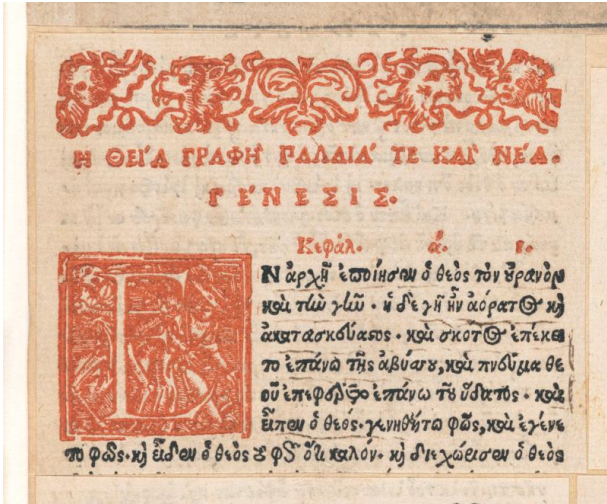 Η ΘΕΊΑ ΓΡΑΦΗ ΠΑΛΑΙΑ ΤΕ ΚΑΙ ΝΕΑ.
ΓΕΝΕΣΙΣ.
Κεφάλ. ά. ι.
ΕΝ ἀρχῇ ἐποίησεν ὁ θεὸς τὸν οὐρανὸν
καὶ τὴν γῆν · ἡ δὲ γῆ ἦν ἀόρατος καὶ
ἀκατασκεύαστος · καὶ σκότος ἐπέκει
το ἐπάνω τῆς ἀβύσσου, καὶ πνεῦμα θε
οῦ ἐπεφέρετο ἐπάνω τοῦ ὕδατος · καὶ
εἶπεν ὁ θεός · γενηθήτω φῶς, καὶ ἐγένε
το φῶς · καὶ εἶδεν ὁ θεὸς τὸ φῶς ὅτι καλόν · καὶ διεχώρισεν ὁ θεὸς